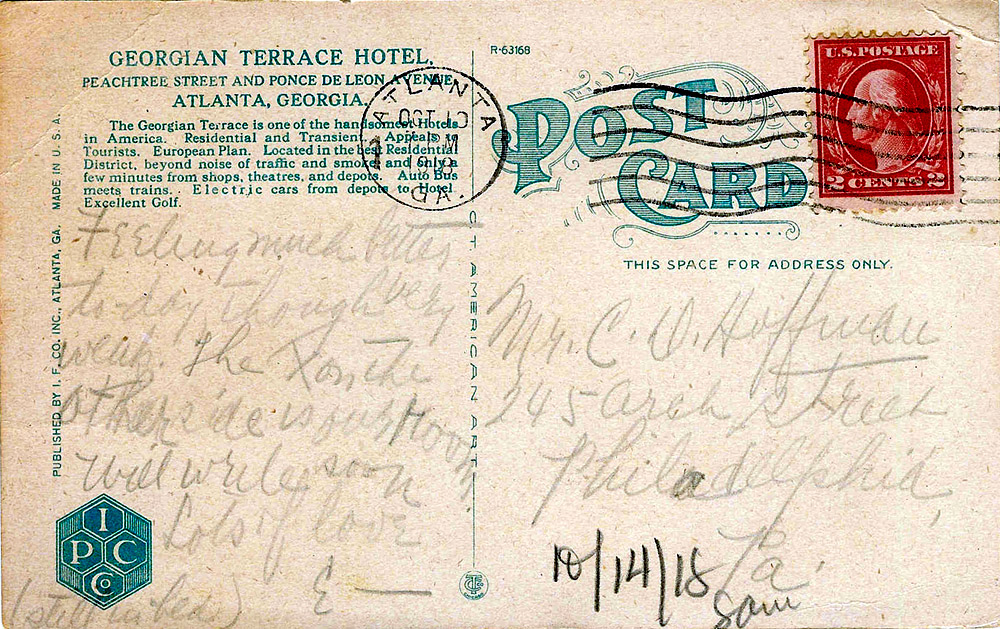 GEORGIAN TERRACE HOTEL,
PEACHTREE STREET AND PONCE DE LEON AVENUE
ATLANTA, GEORGIA.
The Georgian Terrace is one of the handsomest Hotels
in America. Residential and Transient. Appeals to
Tourists. European Plan. Located in the best Residential
District, beyond noise of traffic and smoke and only a
few minutes from shops, theatres, and depots. Auto Bus
meets trains. Electric cars from depots to Hotel.
Excellent Golf.
Feeling much better
to-day though very
weak. The X on the
other side is my room
Will write soon
Lots of love
E —
(still in bed)
MADE IN U.S.A.
PUBLISHED BY I. F. CO. INC., ATLANTA, GA.
I
P C
Co
R-63168
ATLANTA
OCT 10
GA.
POST
CARD
U.S. POSTAGE
2 CENTS 2
THIS SPACE FOR ADDRESS ONLY.
C. T. AMERICAN ART
Mr. C. D. Hoffman
245 Arch Street
Philadelphia,
Pa.
10/14/18